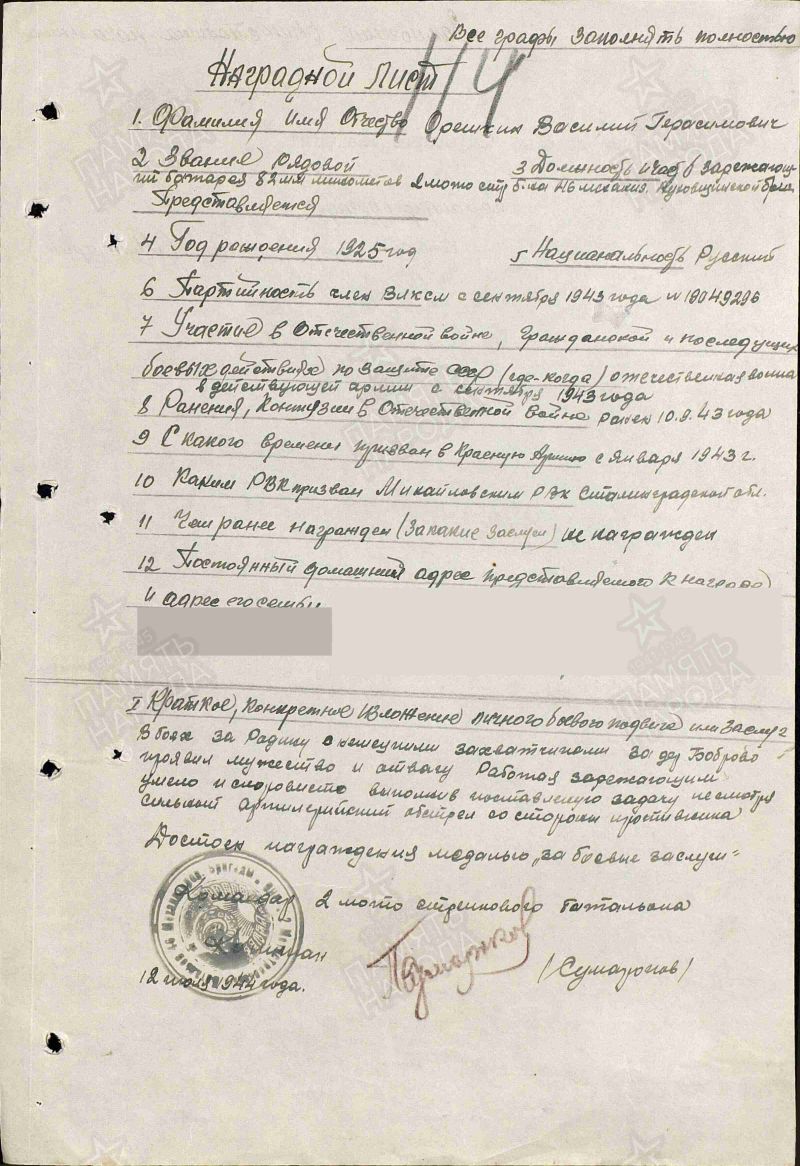 Все графы заполнять полностью
114
Наградной лист
1. Фамилия Имя Отчество Орешкин Василий Герасимович
2 Звание рядовой 3 Должность и часть заряжающ-
ий батареи 82 мм минометов 2 мото стр б-на 46 механиз.
Представляется
4 Год рождения 1925 год 5 Национальность Русский
6 Партийность член ВЛКСМ с сентября 1943 года № 19049296
7 Участие в Отечественной войне, Гражданской и последующих
боевых действиях по защите СССР (где-когда) отечественная война
в действующей армии с сентября 1943 года
8 Ранения, Контузии в Отечественной войне ранен 10.9.43 года
9 С какого времени призван в Красную Армию с Января 1943 г.
10 Каким РВК призван Михайловским РВК Сталинградской обл.
11 Чем ранее награжден (За какие заслуги) не награжден
12 Постоянный домашний адрес представляемого к награде
и адрес его семьи
I Краткое, Конкретное Изложение личного боевого подвига или Заслуг
В боях за Родину с немецкими захватчиками за дер Боброво
проявил мужество и отвагу Работая заряжающим
умело и сноровисто выполнив поставленую задачу несмотря
сильный артилерийский обстрел со стороны противника
Достоен награждения медалью "за боевые заслуги"
Командир 2 мото стрелкового батальона
Капитан
(Сумароков)
12 июля 1944 года.
ПАМЯТЬ НАРОДА